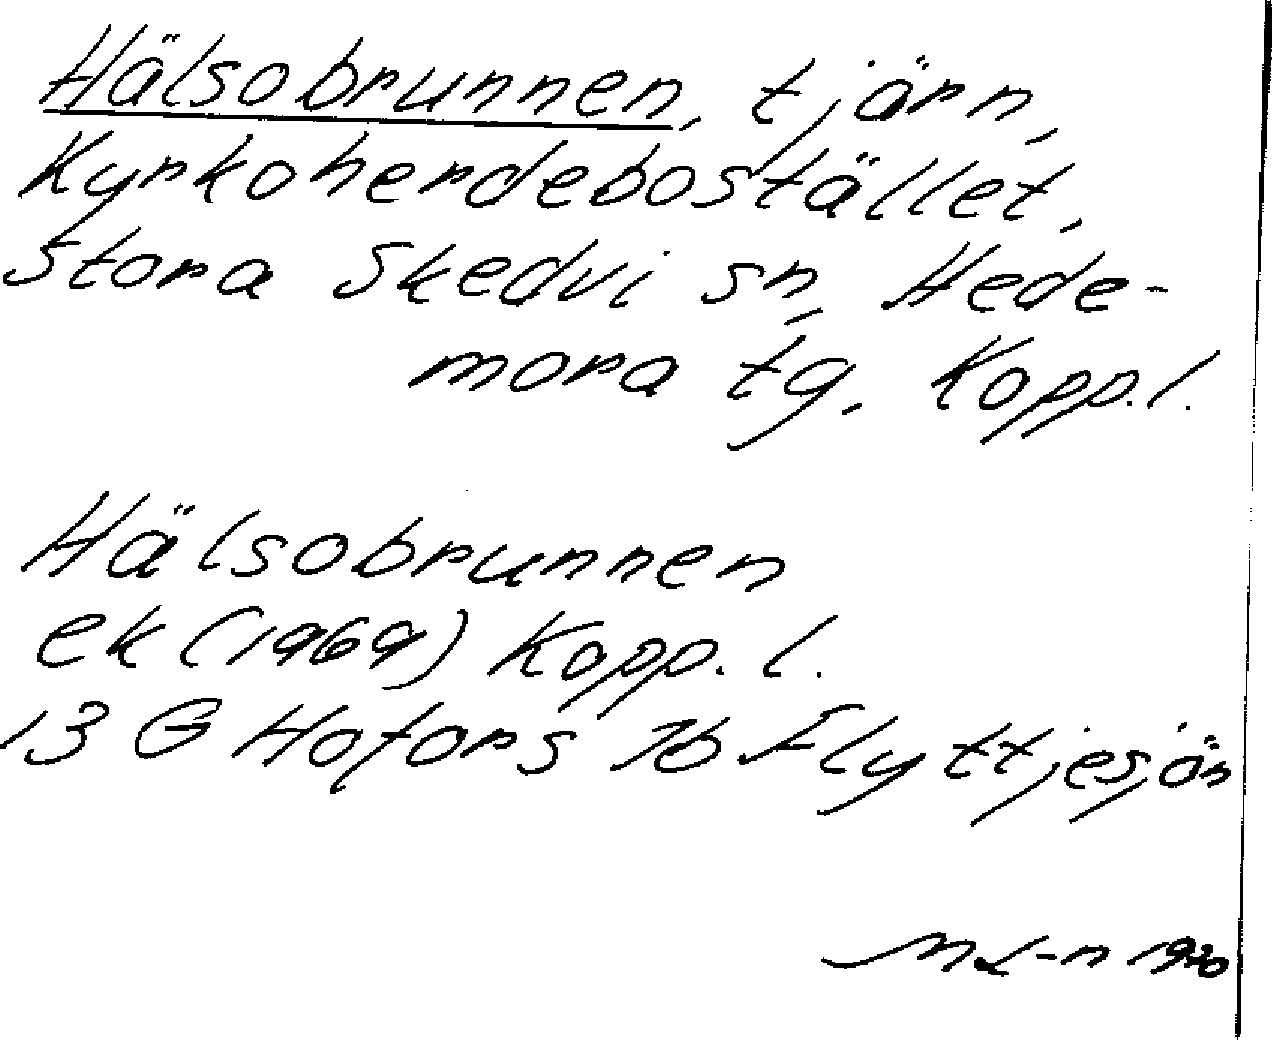 Hälsobrunnen, tjärn,
Kyrkoherdebostället,
Stora Skedvi sn, Hede-
mora tg, Kopp.l.
Hälsobrunnen
ek (1969) Kopp. l.
13 G Hofors 7b Flyttjesjön
ML-n 1970